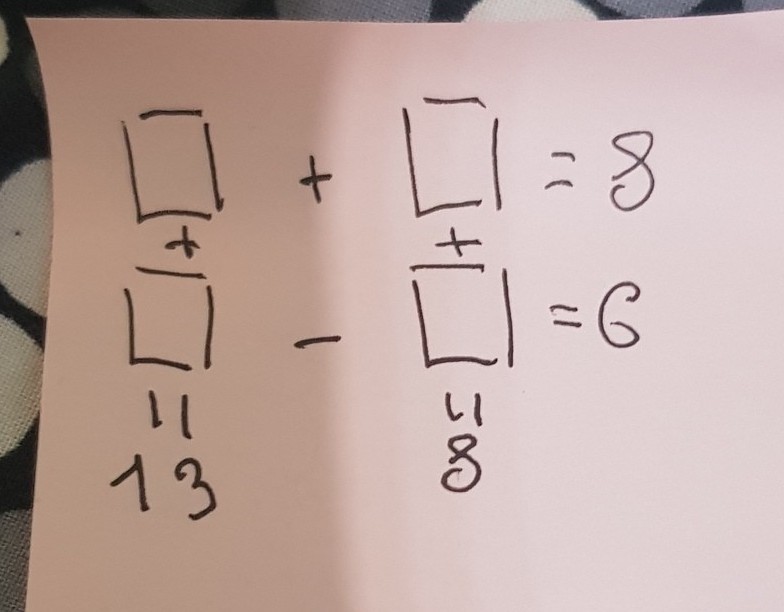 □ + □ = 8
+ +
□ - □ = 6
= =
13 8